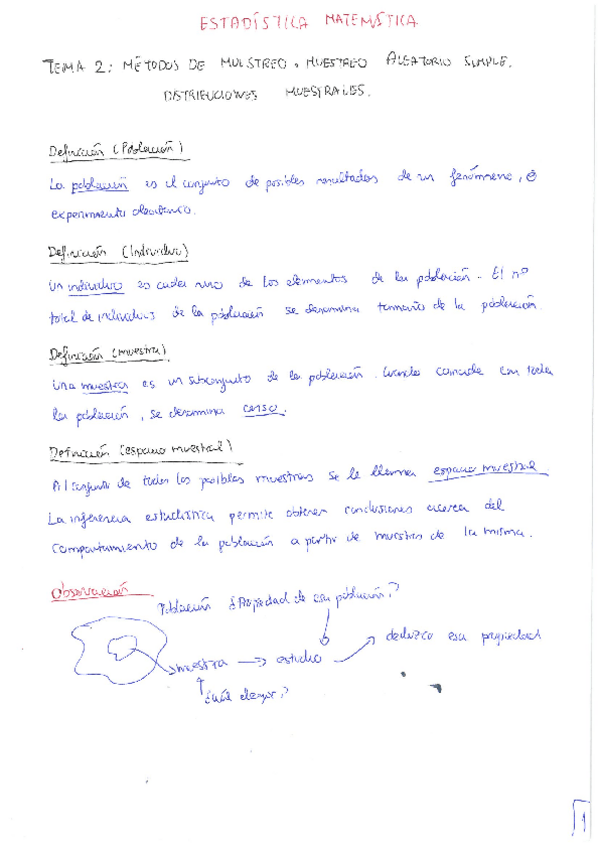 ESTADÍSTICA MATEMÁTICA
TEMA 2: MÉTODOS DE MUESTREO. MUESTREO ALEATORIO SIMPLE.
DISTRIBUCIONES MUESTRALES.
Definición (Población)
La población es el conjunto de posibles resultados de un fenómeno, o
experimento aleatorio.
Definición (Individuo)
Un individuo es cada uno de los elementos de la población. El nº
total de individuos de la población se denomina tamaño de la población.
Definición (muestra)
Una muestra es un subconjunto de la población. Cuando coincide con toda
la población, se denomina censo.
Definición (espacio muestral)
Al conjunto de todas las posibles muestras se le llama espacio muestral
La inferencia estadística permite obtener conclusiones acerca del
comportamiento de la población a partir de muestras de la misma.
Observación
Población ¿Propiedad de esa población?
muestra → estudio → deduzco esa propiedad
¿cuál elegir?
1